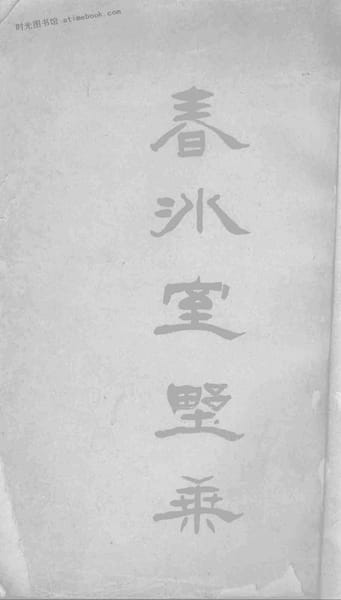 时光图书馆 atimebook.com
春冰室墅乘